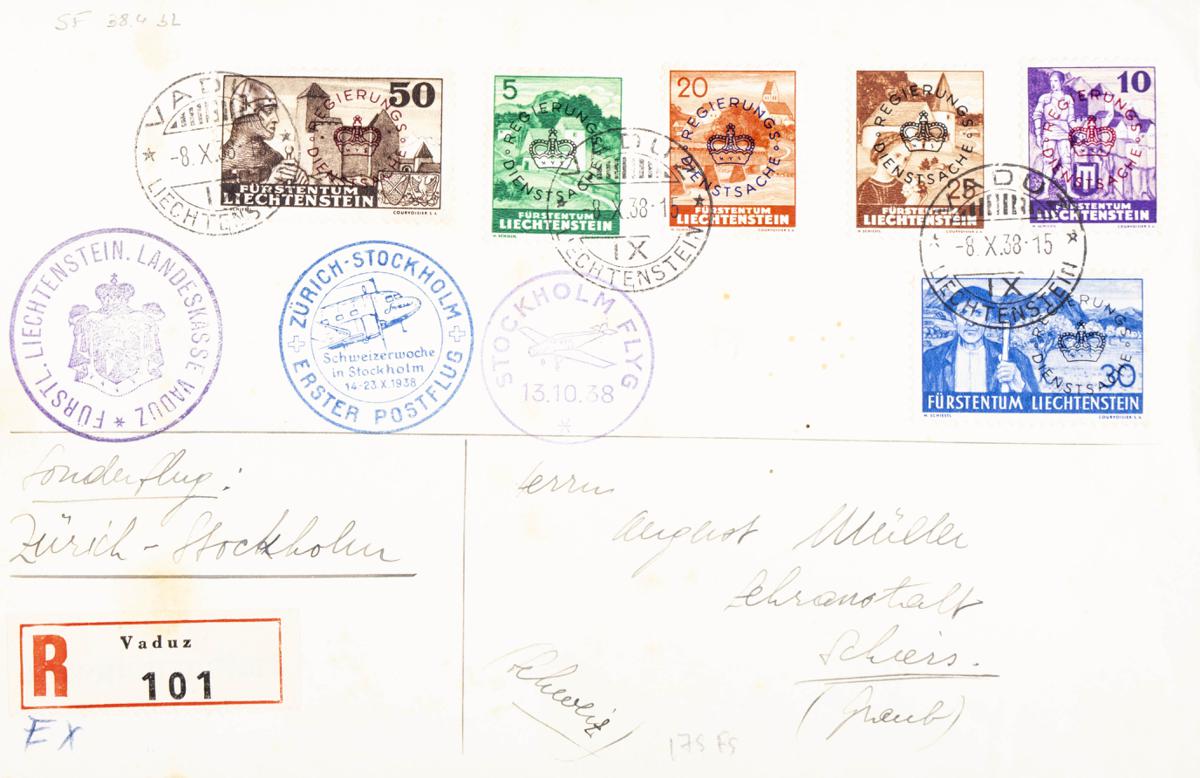 SF 38.4 bL
50
FÜRSTENTUM
LIECHTENSTEIN
H. SCHIESTL COURVOISIER S.A.
REGIERUNGS
DIENSTSACHE
5
FÜRSTENTUM
LIECHTENSTEIN
H. SCHIESTL
REGIERUNGS
DIENSTSACHE
20
FÜRSTENTUM
LIECHTENSTEIN
H. SCHIESTL COURVOISIER S.A.
REGIERUNGS
DIENSTSACHE
25
FÜRSTENTUM
LIECHTENSTEIN
H. SCHIESTL COURVOISIER S.A.
REGIERUNGS
DIENSTSACHE
10
FÜRSTENTUM
LIECHTENSTEIN
COURVOISIER S.A.
REGIERUNGS
DIENSTSACHE
30
FÜRSTENTUM LIECHTENSTEIN
H. SCHIESTL COURVOISIER S.A.
REGIERUNGS
DIENSTSACHE
VADUZ
-8.X.38
IX
LIECHTENS
8.X.38-15
IX
LIECHTENSTEIN
-8.X.38-15
IX
LIECHTENSTEIN
FÜRSTL. LIECHTENSTEIN. LANDESKASSE VADUZ *
ZÜRICH-STOCKHOLM
Schweizerwoche
in Stockholm
14-23.X.1938
ERSTER POSTFLUG
STOCKHOLM FLYG
13.10.38
Sonderflug:
Zürich - Stockholm
R
Vaduz
101
EX
Herrn
August Müller
Lehranstalt
Schiers.
(Graub)
Schweiz
175 FS